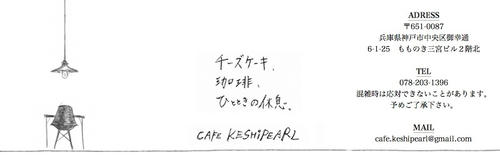 チーズケーキ、
珈琲、
ひとときの休息。
CAFE KESHiPEARL
ADRESS
〒651-0087
兵庫県神戸市中央区御幸通
6-1-25　もものき三宮ビル２階北
TEL
078-203-1396
混雑時は応対できないことがあります。
予めご了承下さい。
MAIL
cafe.keshipearl@gmail.com